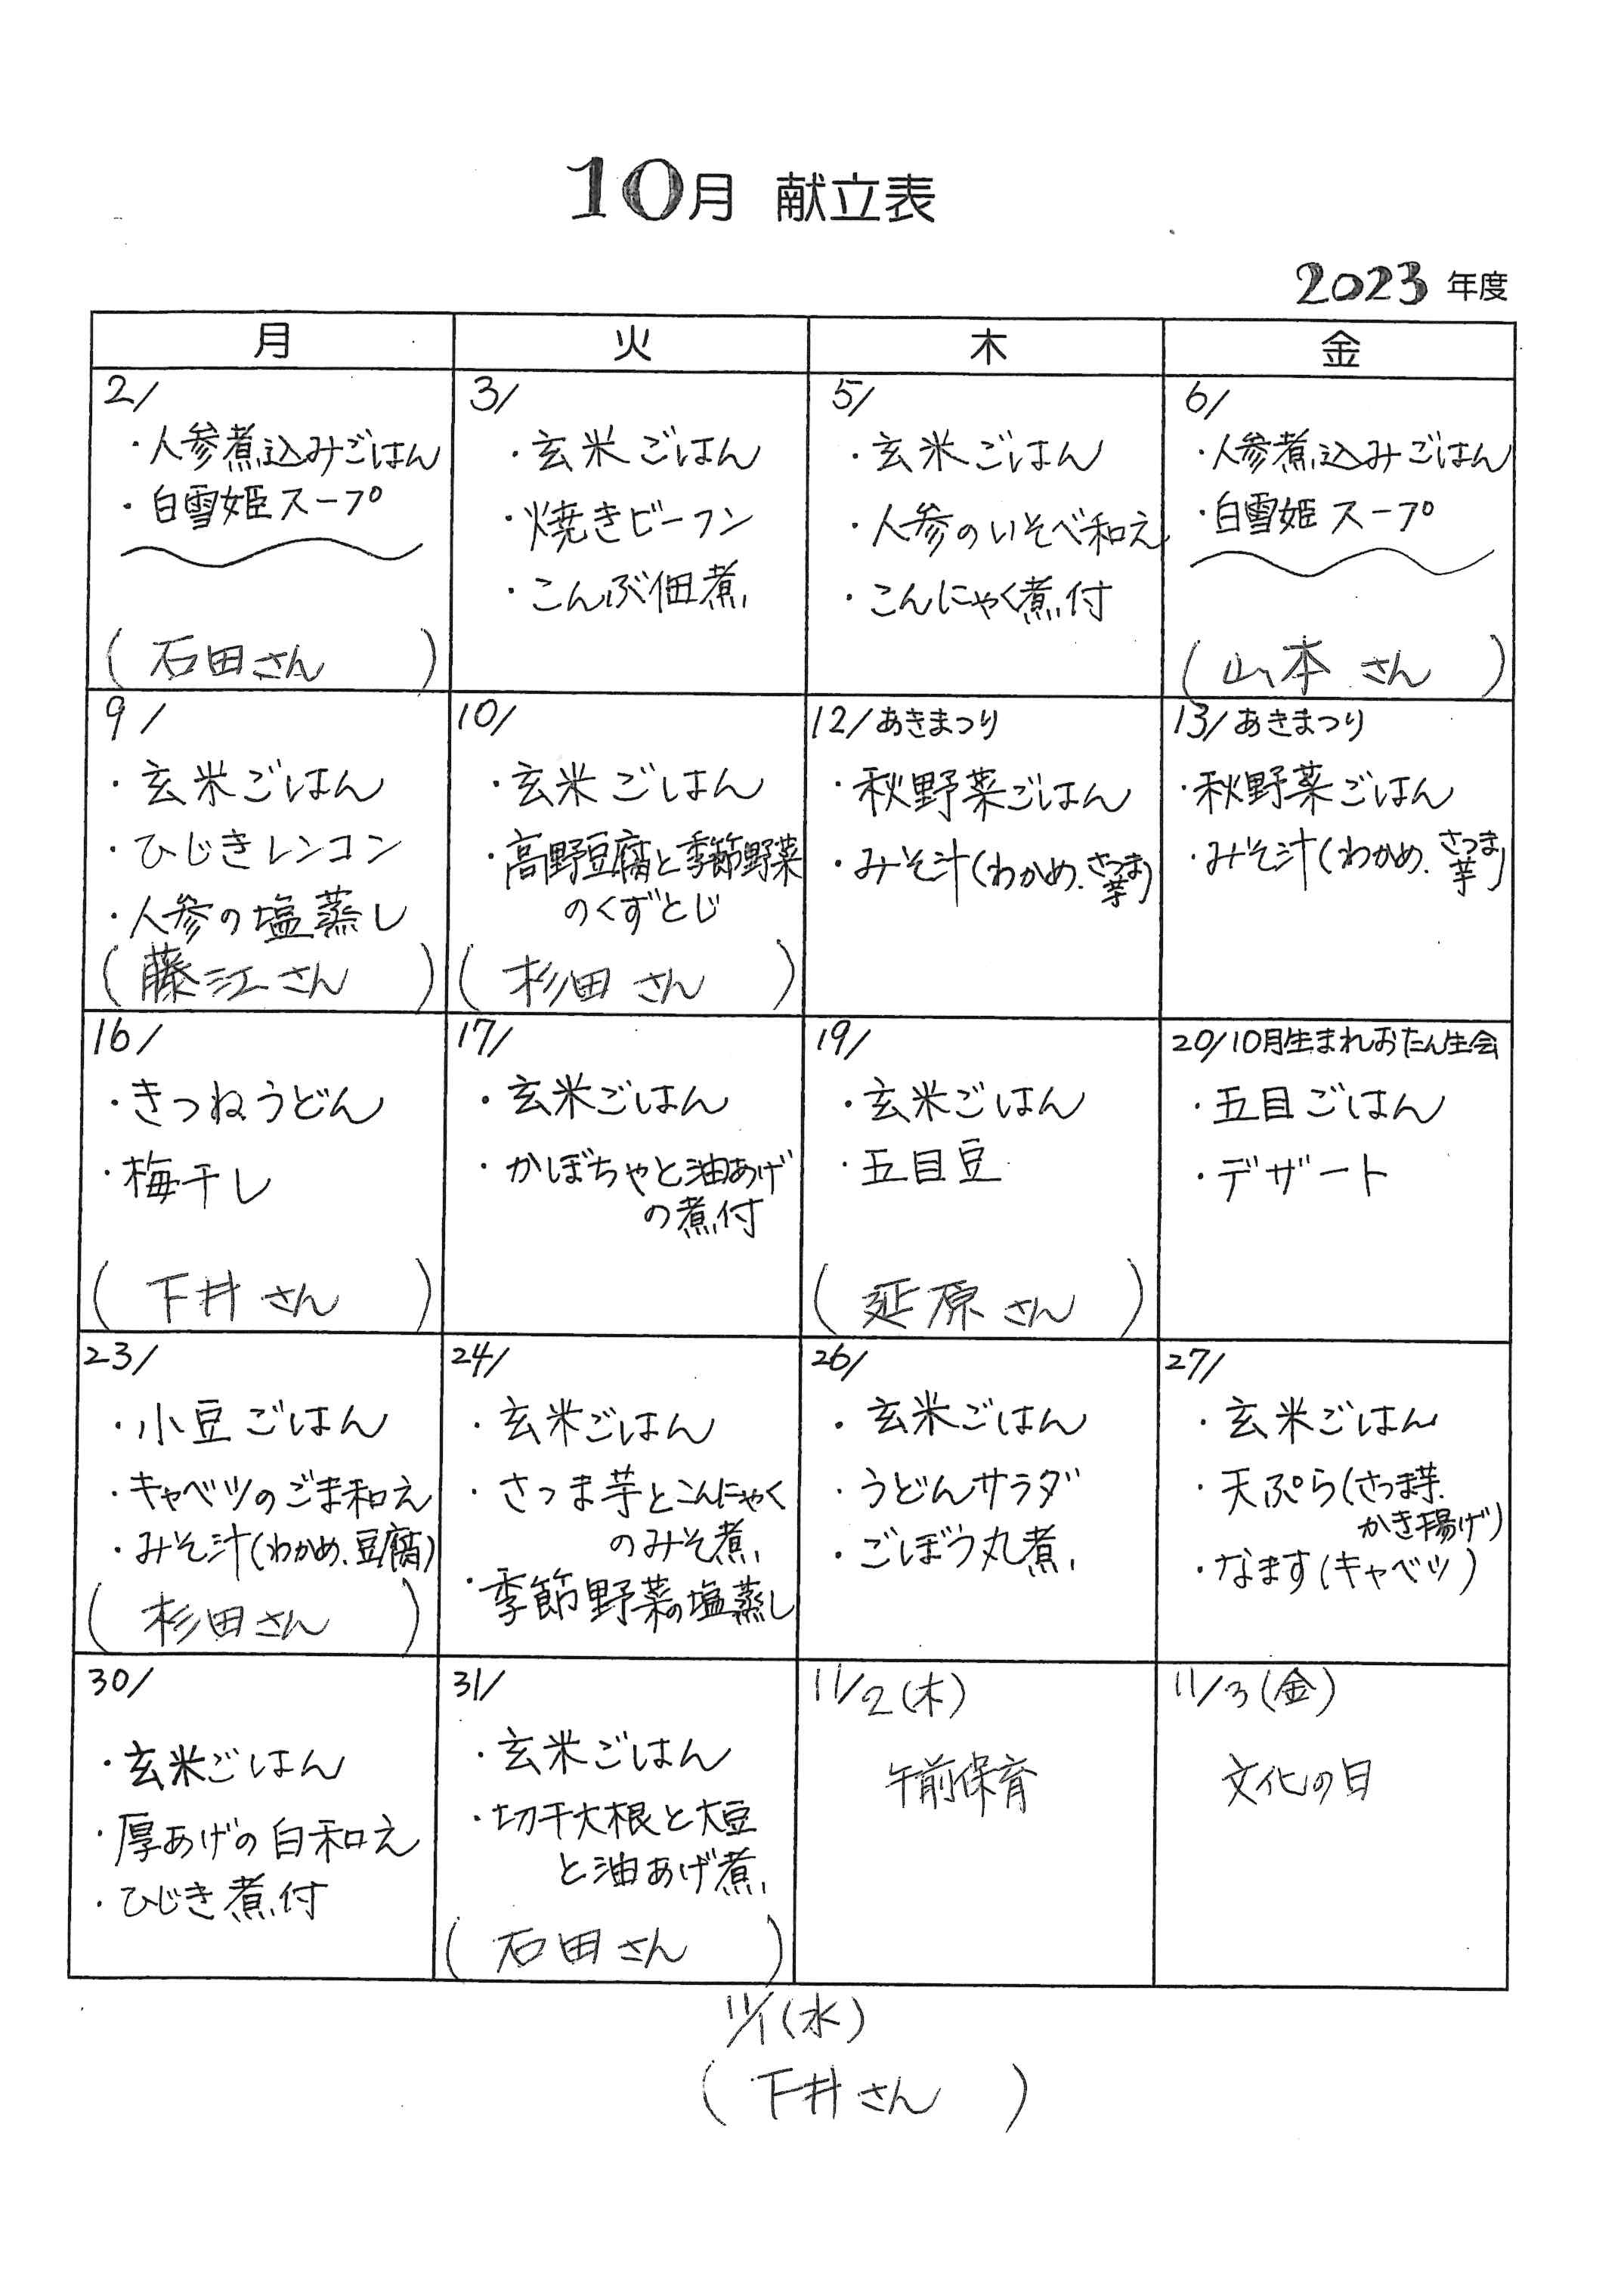 10月 献立表
2023 年度
月 火 木 金
2/
・人参煮込みごはん
・白雪姫スープ
(石田さん)
3/
・玄米ごはん
・焼きビーフン
・こんぶ佃煮
5/
・玄米ごはん
・人参のいそべ和え
・こんにゃく煮付
6/
・人参煮込みごはん
・白雪姫スープ
(山本さん)
9/
・玄米ごはん
・ひじきレンコン
・人参の塩蒸し
(藤江さん)
10/
・玄米ごはん
・高野豆腐と季節野菜
のくずとじ
(杉田さん)
12/あきまつり
・秋野菜ごはん
・みそ汁(わかめ、さつま芋)
13/あきまつり
・秋野菜ごはん
・みそ汁(わかめ、さつま芋)
16/
・きつねうどん
・梅干し
(下井さん)
17/
・玄米ごはん
・かぼちゃと油あげ
の煮付
19/
・玄米ごはん
・五目豆
(延原さん)
20/10月生まれおたん生会
・五目ごはん
・デザート
23/
・小豆ごはん
・キャベツのごま和え
・みそ汁(わかめ、豆腐)
(杉田さん)
24/
・玄米ごはん
・さつま芋とこんにゃく
のみそ煮
・季節野菜の塩蒸し
26/
・玄米ごはん
・うどんサラダ
・ごぼう丸煮
27/
・玄米ごはん
・天ぷら(さつま芋、
かき揚げ)
・なます(キャベツ)
30/
・玄米ごはん
・厚あげの白和え
・ひじき煮付
31/
・玄米ごはん
・切干大根と大豆
と油あげ煮
(石田さん)
11/2(木)
午前保育
11/3(金)
文化の日
11/1(水)
(下井さん)